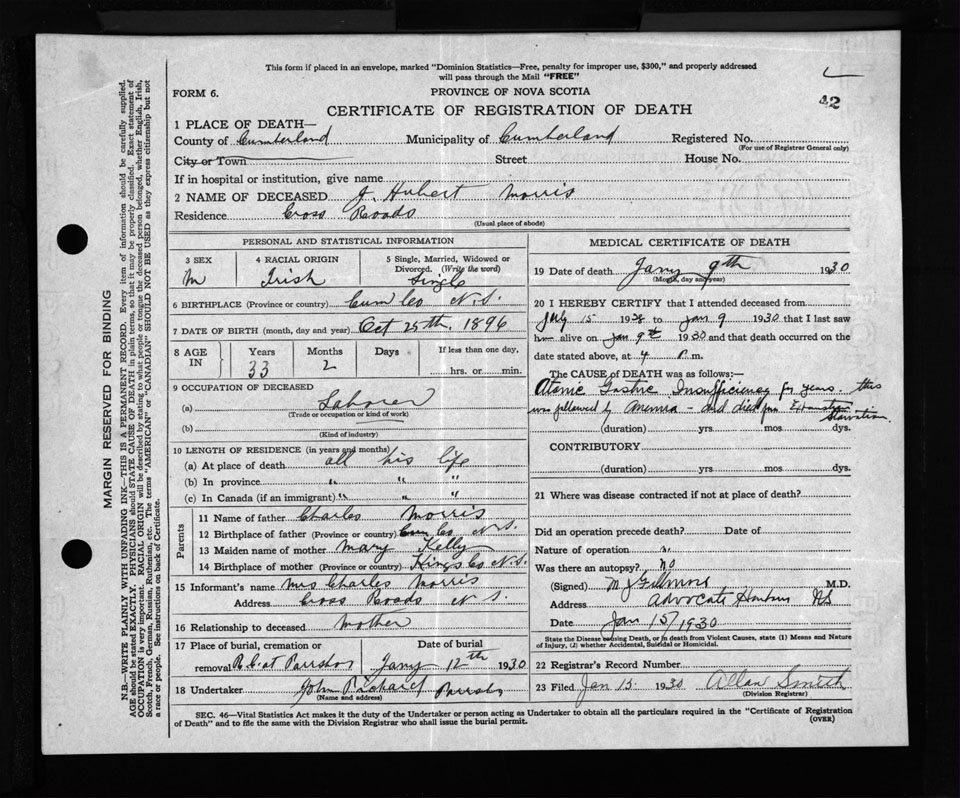 This form if placed in an envelope, marked "Dominion Statistics—Free, penalty for improper use, $300," and properly addressed
will pass through the Mail "FREE"
42
FORM 6.
PROVINCE OF NOVA SCOTIA
CERTIFICATE OF REGISTRATION OF DEATH
1 PLACE OF DEATH—
County of Cumberland Municipality of Cumberland Registered No.
(For use of Registrar General only)
City or Town Street House No.
If in hospital or institution, give name
2 NAME OF DECEASED J. Hubert Morris
Residence Cross Roads
(Usual place of abode)
PERSONAL AND STATISTICAL INFORMATION
3 SEX 4 RACIAL ORIGIN 5 Single, Married, Widowed or
Divorced. (Write the word)
M Irish Single
6 BIRTHPLACE (Province or country) Cum Co N.S.
7 DATE OF BIRTH (month, day and year) Oct 25th, 1896
8 AGE IN Years Months Days If less than one day,
33 2 hrs. or min.
9 OCCUPATION OF DECEASED
(a) Laborer
(Trade or occupation or kind of work)
(b)
(Kind of industry)
10 LENGTH OF RESIDENCE (in years and months)
(a) At place of death all his life
(b) In province " " "
(c) In Canada (if an immigrant) " " "
Parents
11 Name of father Charles Morris
12 Birthplace of father (Province or country) Cum Co N.S.
13 Maiden name of mother Mary Kelly
14 Birthplace of mother (Province or country) Kings Co N.S.
15 Informant's name Mrs Charles Morris
Address Cross Roads N S.
16 Relationship to deceased mother
17 Place of burial, cremation or Date of burial
removal R.C. at Parrsboro Jany 12th 1930
18 Undertaker John Prichard Parrsboro
(Name and address)
MEDICAL CERTIFICATE OF DEATH
19 Date of death Jany 9th 1930
(Month, day and year)
20 I HEREBY CERTIFY that I attended deceased from
July 15 1928 to Jan 9 1930 that I last saw
him alive on Jan 9th 1930 and that death occurred on the
date stated above, at 4 P m.
The CAUSE OF DEATH was as follows:—
Atonic Gastric Insufficiency for years. this
was followed by Anemia - and died from Exhaustion
Starvation
(duration) yrs mos dys.
CONTRIBUTORY
(duration) yrs mos dys.
21 Where was disease contracted if not at place of death?
Did an operation precede death? Date of
Nature of operation
Was there an autopsy? No
(Signed) M. D.
Address Advocate Harbour NS
Date Jan 15/1930
State the Disease causing Death, or in death from Violent Causes, state (1) Means and Nature
of Injury, (2) whether Accidental, Suicidal or Homicidal.
22 Registrar's Record Number
23 Filed Jan 15. 1930 Allan Smith
(Division Registrar)
SEC. 46—Vital Statistics Act makes it the duty of the Undertaker or person acting as Undertaker to obtain all the particulars required in the "Certificate of Registration
of Death" and to file the same with the Division Registrar who shall issue the burial permit.
(OVER)
MARGIN RESERVED FOR BINDING
N.B.—WRITE PLAINLY WITH UNFADING INK—THIS IS A PERMANENT RECORD. Every item of information should be carefully supplied.
AGE should be stated EXACTLY. PHYSICIANS should STATE CAUSE OF DEATH in plain terms, so that it may be properly classified. Exact statement of
OCCUPATION is very important. RACIAL ORIGIN will be described by stating to what people or tongue the deceased person belonged, whether English, Irish,
Scotch, French, German, Russian, Ruthenian, etc. The terms "AMERICAN" or "CANADIAN" SHOULD NOT BE USED as they express citizenship but not
a race or people. See instructions on back of Certificate.